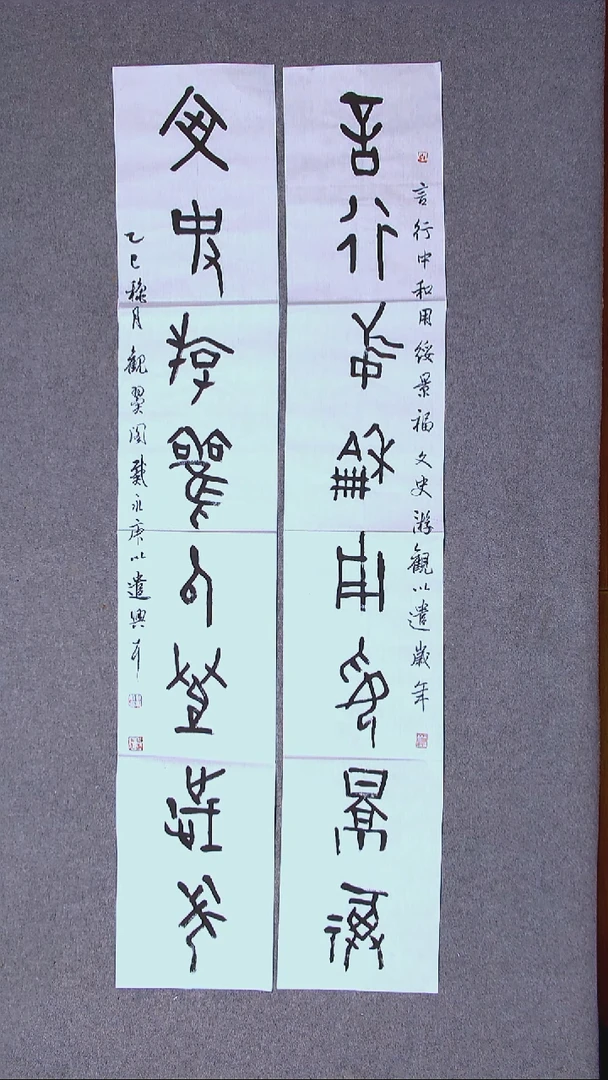 言行中和用綏景福文史游觀以遣歲年
言行中龢用綏景福
文史游觀以遣歲年
乙巳穐月觀閣戴永庚以遣興